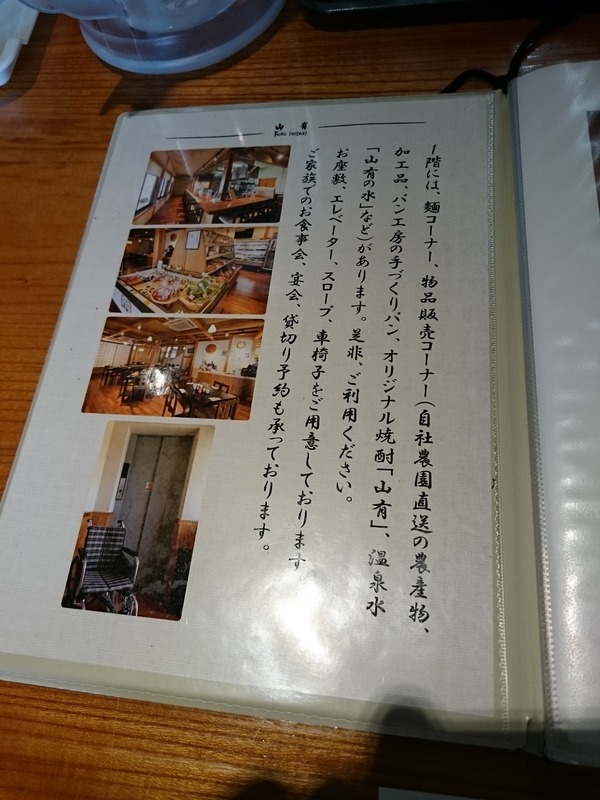 山有
1階には、麺コーナー、物品販売コーナー(自社農園直送の農産物、
加工品、パン工房の手づくりパン、オリジナル焼酎「山有」、温泉水
「山有の水」など)があります。是非、ご利用ください。
お座敷、エレベーター、スロープ、車椅子をご用意しております。
ご家族でのお食事会、宴会、貸切り予約も承っております。